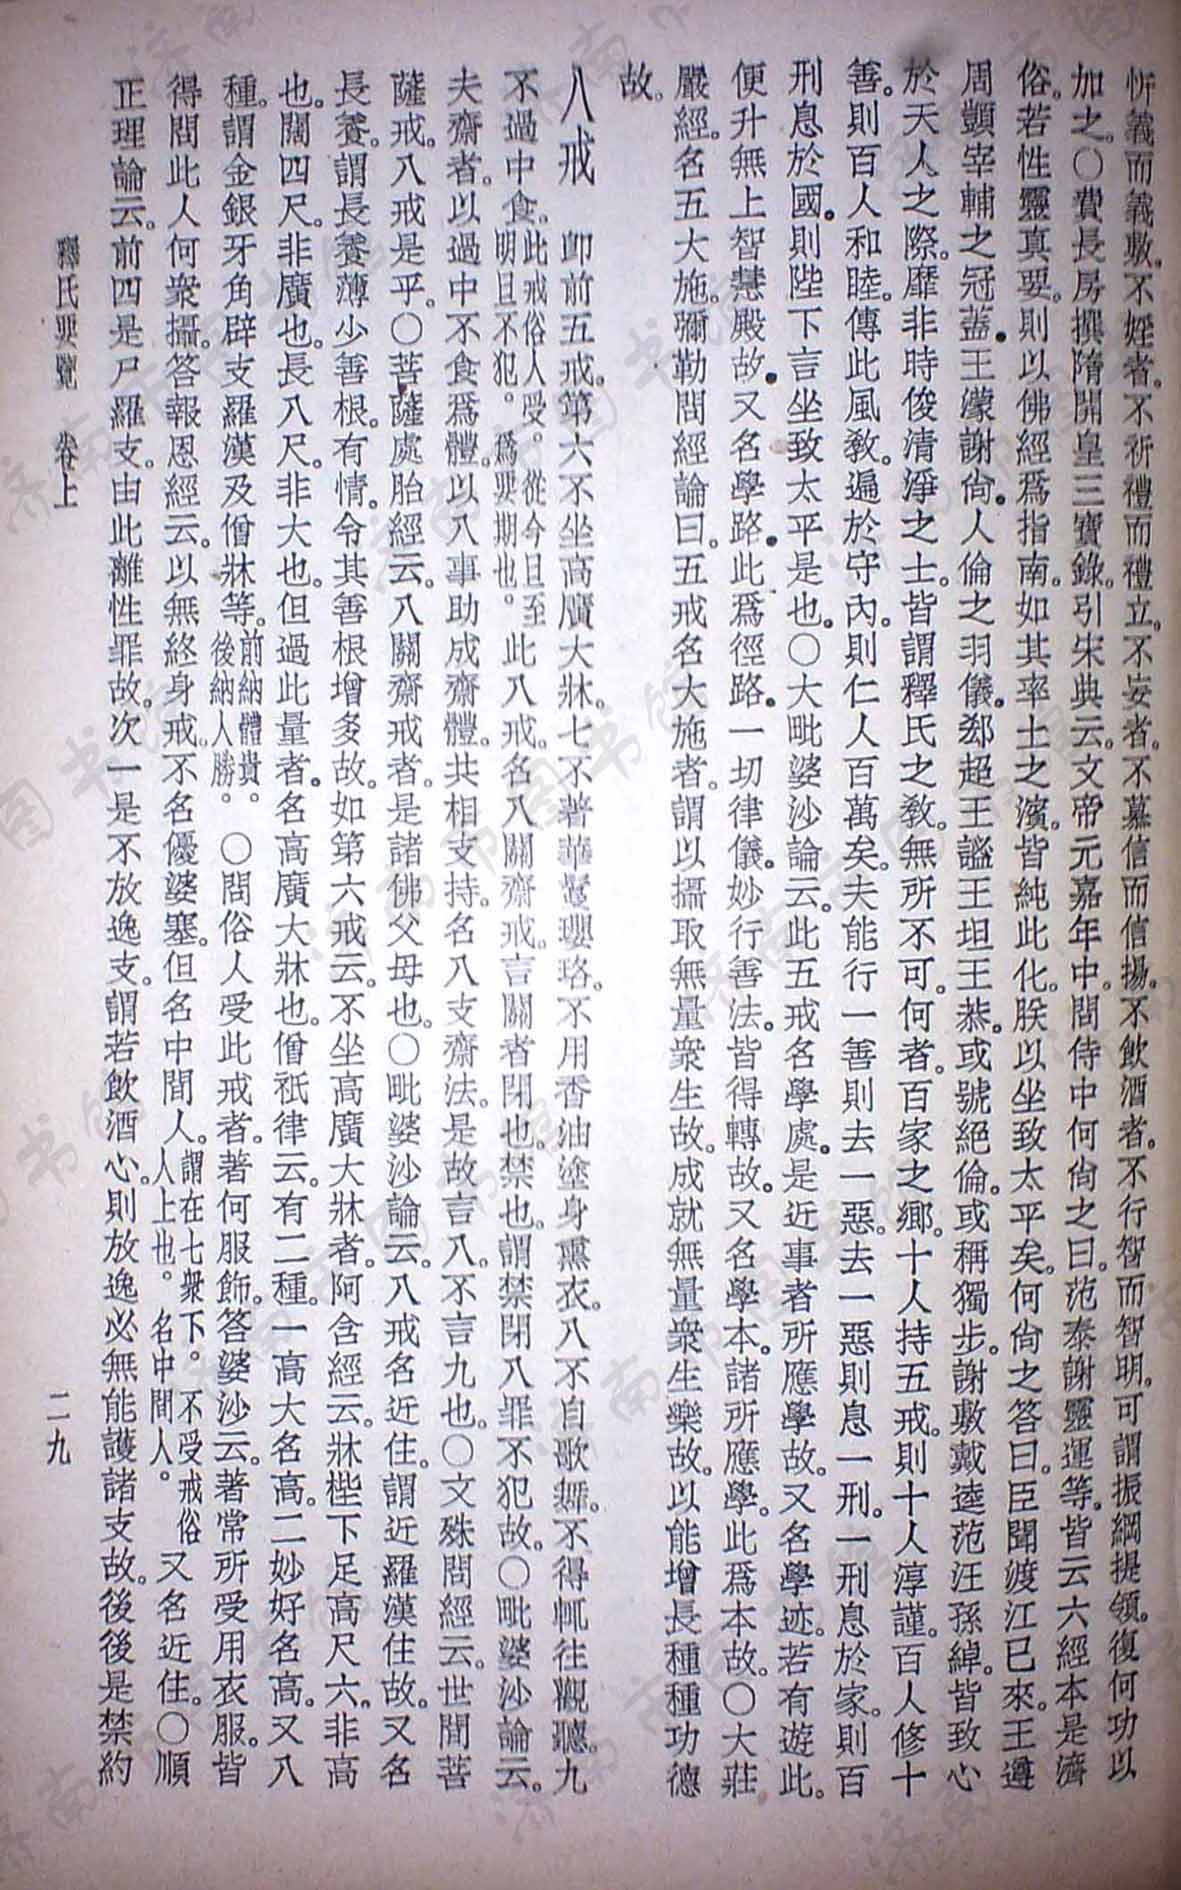 忻義而義敷。不婬者。不祈禮而禮立。不妄者。不慕信而信揚。不飲酒者。不行智而智明。可謂振綱提領。復何功以
加之。〇費長房撰隋開皇三寶錄。引宋典云。文帝元嘉年中。問侍中何尙之曰。范泰謝靈運等。皆云六經本是濟
俗。若性靈真要。則以佛經爲指南。如其率土之濱。皆純此化。朕以坐致太平矣。何尙之答曰。臣聞渡江已來。王遵
周顗宰輔之冠蓋。王濛謝尙。人倫之羽儀。郄超王謐王坦王恭。或號絕倫。或稱獨步。謝敷戴逵范汪孫綽。皆致心
於天人之際。靡非時俊清淨之士。皆謂釋氏之敎。無所不可。何者。百家之鄉。十人持五戒。則十人淳謹。百人修十
善。則百人和睦。傳此風敎。遍於守內。則仁人百萬矣。夫能行一善則去一惡。去一惡則息一刑。一刑息於家。則百
刑息於國。則陛下言坐致太平是也。〇大毗婆沙論云。此五戒名學處。是近事者所應學故。又名學迹。若有遊此。
便升無上智慧殿故。又名學路。此爲徑路。一切律儀。妙行善法。皆得轉故。又名學本。諸所應學。此爲本故。〇大莊
嚴經。名五大施。彌勒問經論曰。五戒名大施者。謂以攝取無量衆生故。成就無量衆生樂故。以能增長種種功德
故。
八戒　卽前五戒。第六不坐高廣大牀。七不著華鬘瓔珞。不用香油塗身熏衣。八不自歌舞。不得輒往觀聽。九
不過中食。此戒俗人受。從今旦至明旦不犯。爲要期也。此八戒。名八關齋戒。言關者閉也。禁也。謂禁閉八罪不犯故。〇毗婆沙論云。
夫齋者。以過中不食爲體。以八事助成齋體。共相支持。名八支齋法。是故言八。不言九也。〇文殊問經云。世間菩
薩戒。八戒是乎。〇菩薩處胎經云。八關齋戒者。是諸佛父母也。〇毗婆沙論云。八戒名近住。謂近羅漢住故。又名
長養。謂長養薄少善根。有情。令其善根增多故。如第六戒云。不坐高廣大牀者。阿含經云。牀梐下足高尺六。非高
也。闊四尺。非廣也。長八尺。非大也。但過此量者。名高廣大牀也。僧祇律云。有二種。一高大名高。二妙好名高。又八
種。謂金銀牙角辟支羅漢及僧牀等。前納體貴。後納人勝。〇問俗人受此戒者。著何服飾。答婆沙云。著常所受用衣服。皆
得問此人何衆攝。答報恩經云。以無終身戒。不名優婆塞。但名中間人。謂在七衆下。不受戒俗人上也。名中間人。又名近住。〇順
正理論云。前四是尸羅支。由此離性罪故。次一是不放逸支。謂若飲酒心。則放逸必無能護諸支故。後後是禁約
釋氏要覽　卷上
二九